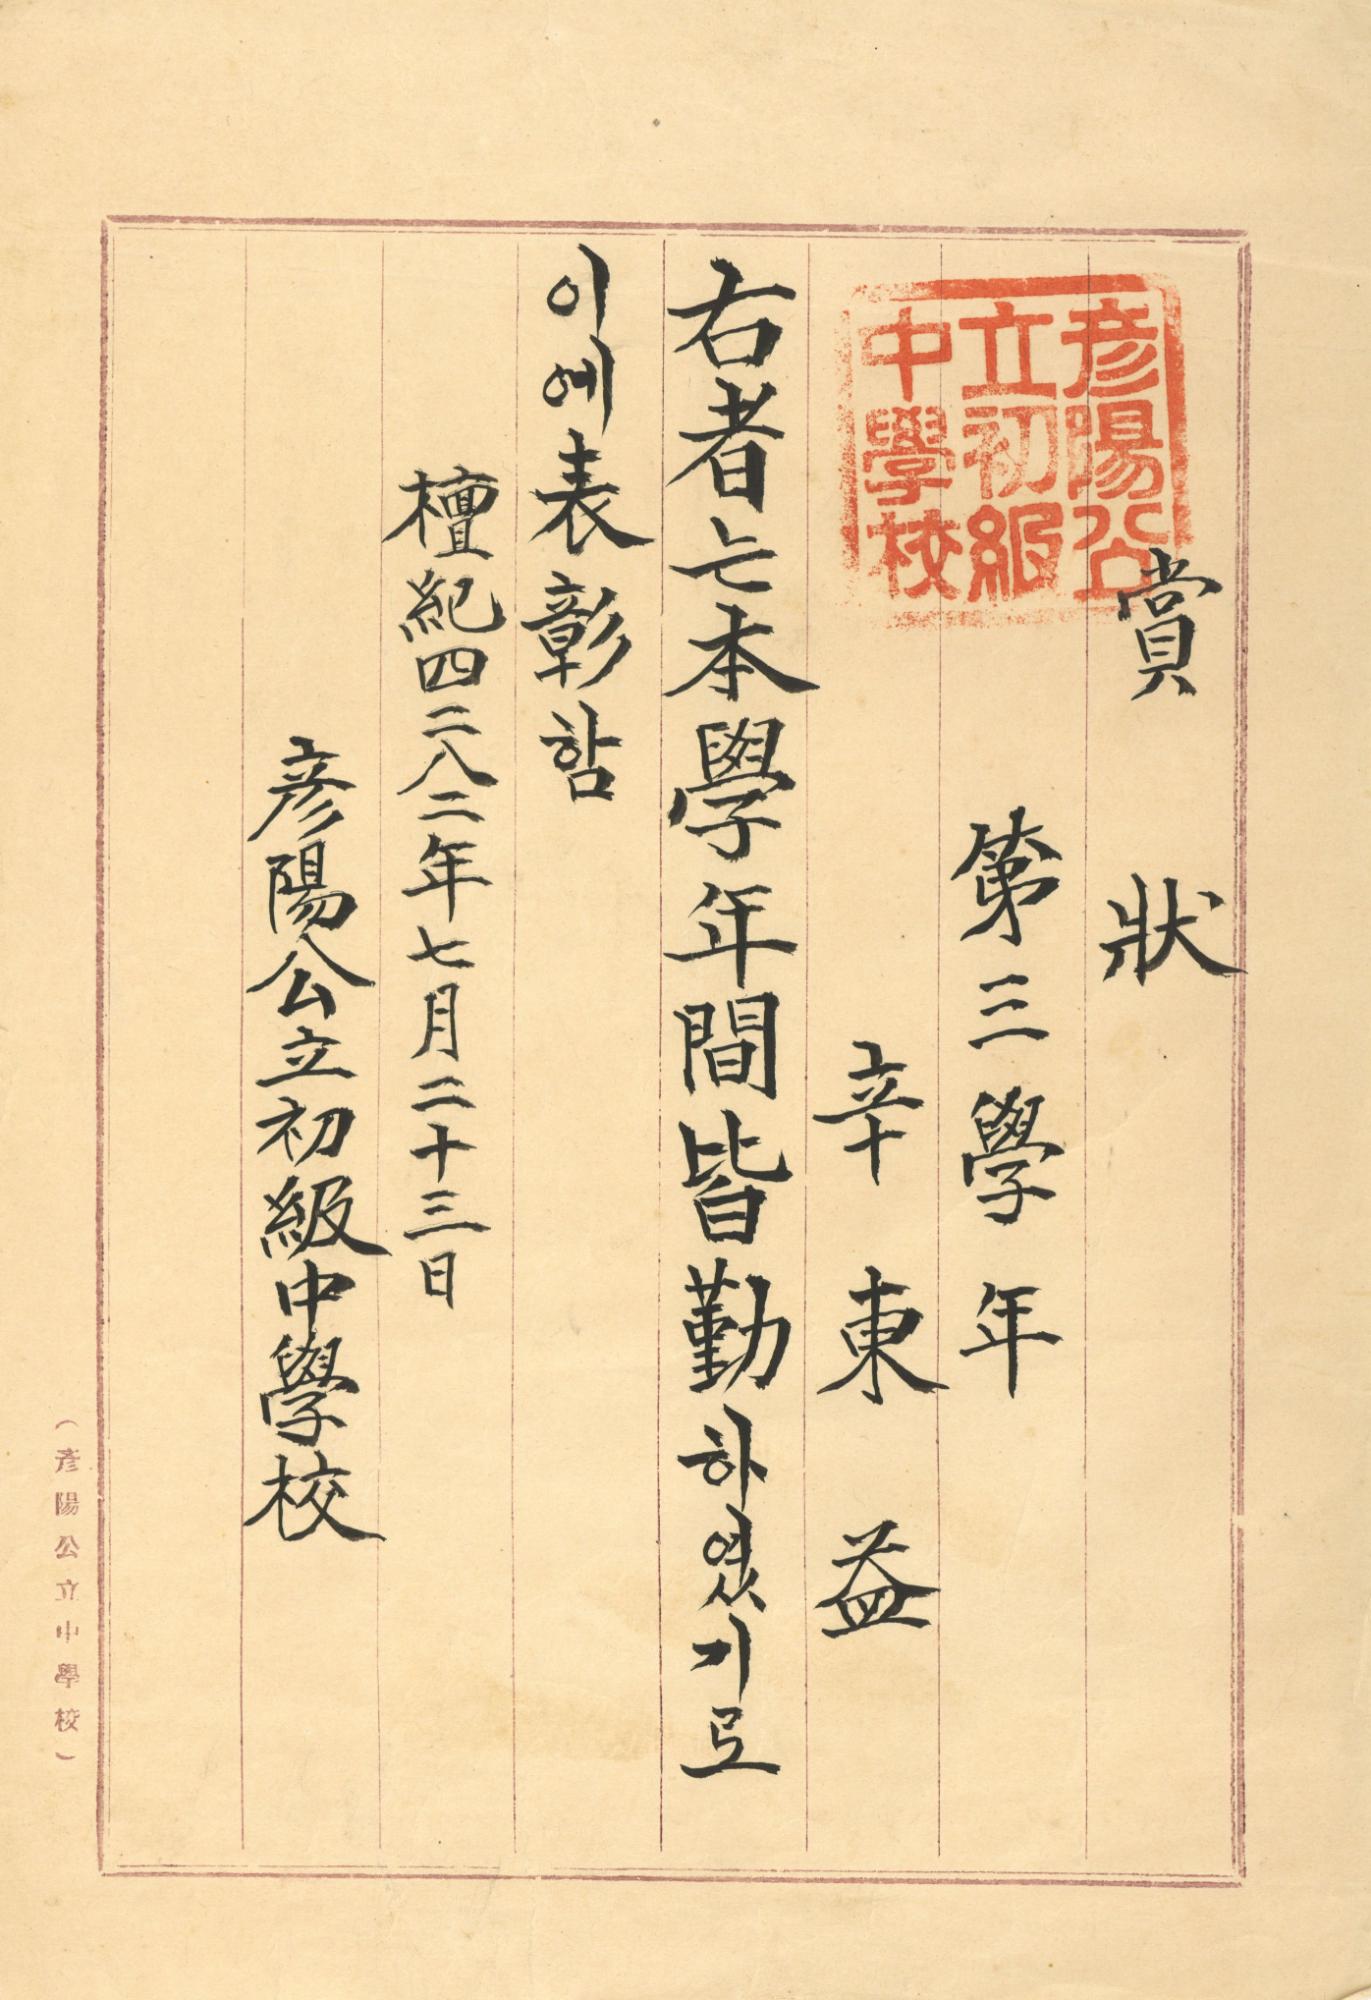 彦陽公
立初級
中學校
賞狀
第三學年
辛東益
右者는本學年間皆勤하였기로
이에表彰함
檀紀四二八二年七月二十三日
彦陽公立初級中學校
(彦陽公立中學校)